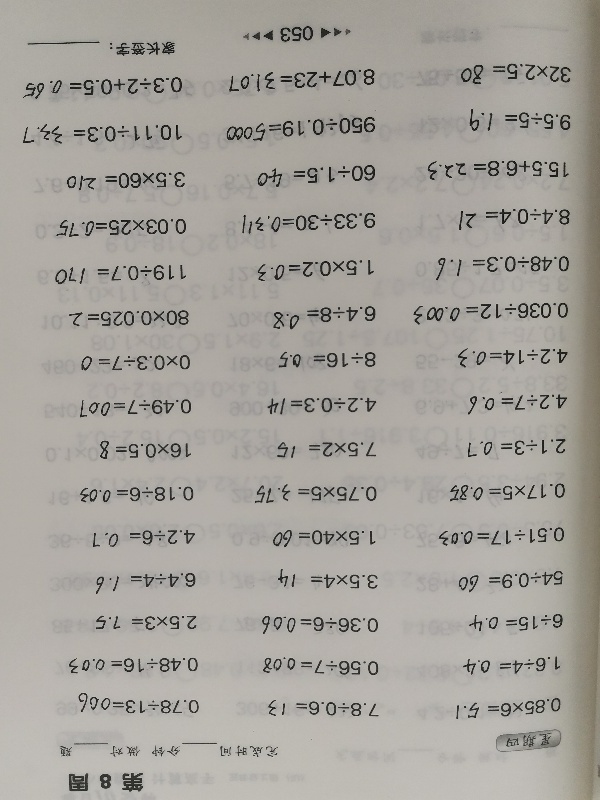 第 8 周
完成时间 ____ 分钟 做对 ____ 题
星期四
0.85×6=5.1 7.8÷0.6=13 0.78÷13=0.06
1.6÷4=0.4 0.56÷7=0.08 0.48÷16=0.03
6÷15=0.4 0.36÷6=0.06 2.5×3=7.5
54÷0.9=60 3.5×4=14 6.4÷4=1.6
0.51÷17=0.03 1.5×40=60 4.2÷6=0.7
0.17×5=0.85 0.75×5=3.75 0.18÷6=0.03
2.1÷3=0.7 7.5×2=15 16×0.5=8
4.2÷7=0.6 4.2÷0.3=14 0.49÷7=0.07
4.2÷14=0.3 8÷16=0.5 0×0.3÷7=0
0.036÷12=0.003 6.4÷8=0.8 80×0.025=2
0.48÷0.3=1.6 1.5×0.2=0.3 119÷0.7=170
8.4÷0.4=21 9.33÷30=0.311 0.03×25=0.75
15.5+6.8=22.3 60÷1.5=40 3.5×60=210
9.5÷5=1.9 950÷0.19=5000 10.11÷0.3=33.7
32×2.5=80 8.07+23=31.07 0.3÷2+0.5=0.65
家长签字：
053